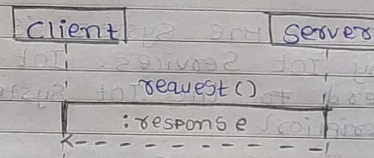 Client Server
request()
: response